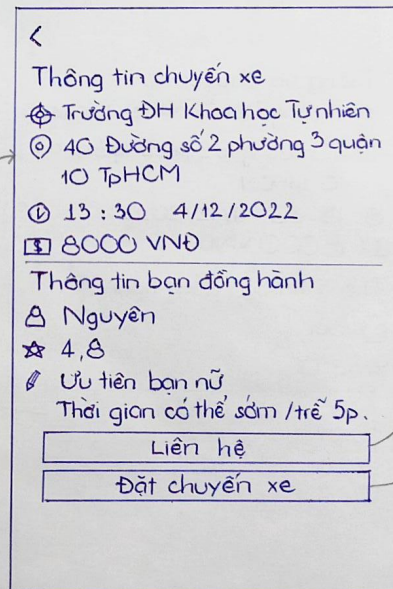 <
Thông tin chuyến xe
Trường ĐH Khoa học Tự nhiên
40 Đường số 2 phường 3 quận
10 TpHCM
13 : 30 4/12/2022
$ 8000 VNĐ
Thông tin bạn đồng hành
Nguyên
4,8
Ưu tiên bạn nữ
Thời gian có thể sớm /trễ 5p.
Liên hệ
Đặt chuyến xe